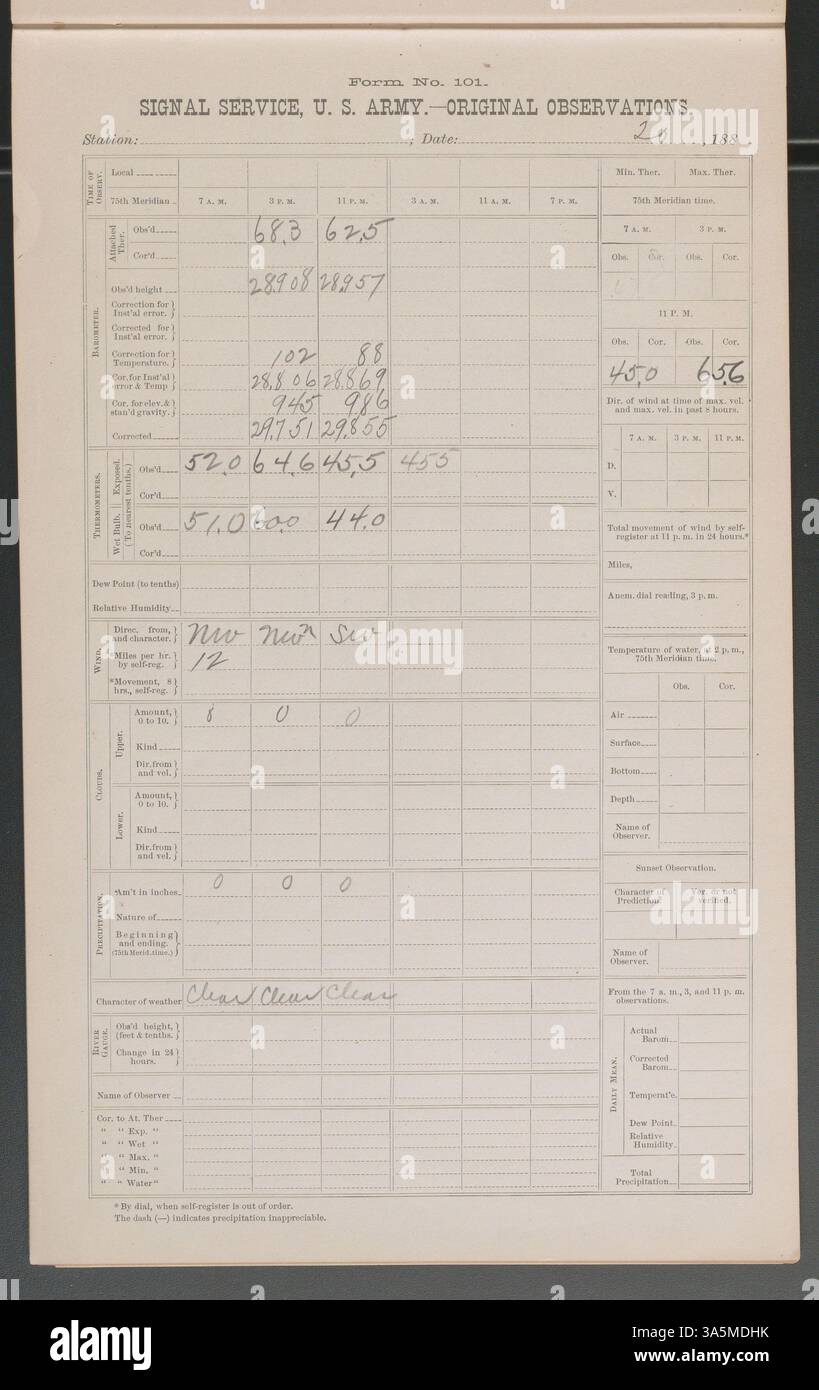 Form No. 101.
SIGNAL SERVICE, U. S. ARMY.—ORIGINAL OBSERVATIONS.
Station: ; Date: , 188 .
TIME OF OBSERV.
Local
75th Meridian 7 A. M. 3 P. M. 11 P. M. 3 A. M. 11 A. M. 7 P. M.
BAROMETER.
Attached Ther.
Obs'd 68.3 62.5
Cor'd
Obs'd height 28.908 28.957
Correction for Inst'al error.
Corrected for Inst'al error.
Correction for Temperature. 102 88
Cor. for Inst'al error & Temp 28.806 28.869
Cor. for elev. & stan'd gravity. 945 986
Corrected 29.751 29.855
THERMOMETERS.
(To nearest tenths.)
Exposed.
Obs'd 52.0 64.6 45.5 455
Cor'd
Wet Bulb.
Obs'd 51.0 60.0 44.0
Cor'd
Dew Point (to tenths)
Relative Humidity
WIND.
Direc. from, and character. NW NW SW
*Miles per hr. by self-reg. 12
*Movement, 8 hrs., self-reg.
CLOUDS.
Upper.
Amount, 0 to 10. 8 0 0
Kind
Dir. from and vel.
Lower.
Amount, 0 to 10.
Kind
Dir. from and vel.
PRECIPITATION.
Am't in inches 0 0 0
Nature of
Beginning and ending. (75th Merid. time.)
Character of weather Clear Clear Clear
RIVER GAUGE.
Obs'd height, (feet & tenths.
Change in 24 hours.
Name of Observer
Cor. to At. Ther
“ “ Exp. “
“ “ Wet “
“ “ Max. “
“ “ Min. “
“ “ Water “
Min. Ther. Max. Ther.
75th Meridian time.
7 A. M. 3 P. M.
Obs. Cor. Obs. Cor.
11 P. M.
Obs. Cor. Obs. Cor.
45.0 65.6
Dir. of wind at time of max. vel. and max. vel. in past 8 hours.
7 A. M. 3 P. M. 11 P. M.
D.
V.
Total movement of wind by self-register at 11 p. m. in 24 hours.*
Miles,
Anem. dial reading, 3 p. m.
Temperature of water, at 2 p. m., 75th Meridian time.
Obs. Cor.
Air
Surface
Bottom
Depth
Name of Observer.
Sunset Observation.
Character of Prediction. Ver. or not verified.
Name of Observer.
From the 7 a. m., 3, and 11 p. m. observations.
DAILY MEAN.
Actual Barom
Corrected Barom
Temperat'e.
Dew Point.
Relative Humidity.
Total Precipitation
* By dial, when self-register is out of order.
The dash (—) indicates precipitation inappreciable.
alamy
Image ID: 3A5MDHK
www.alamy.com